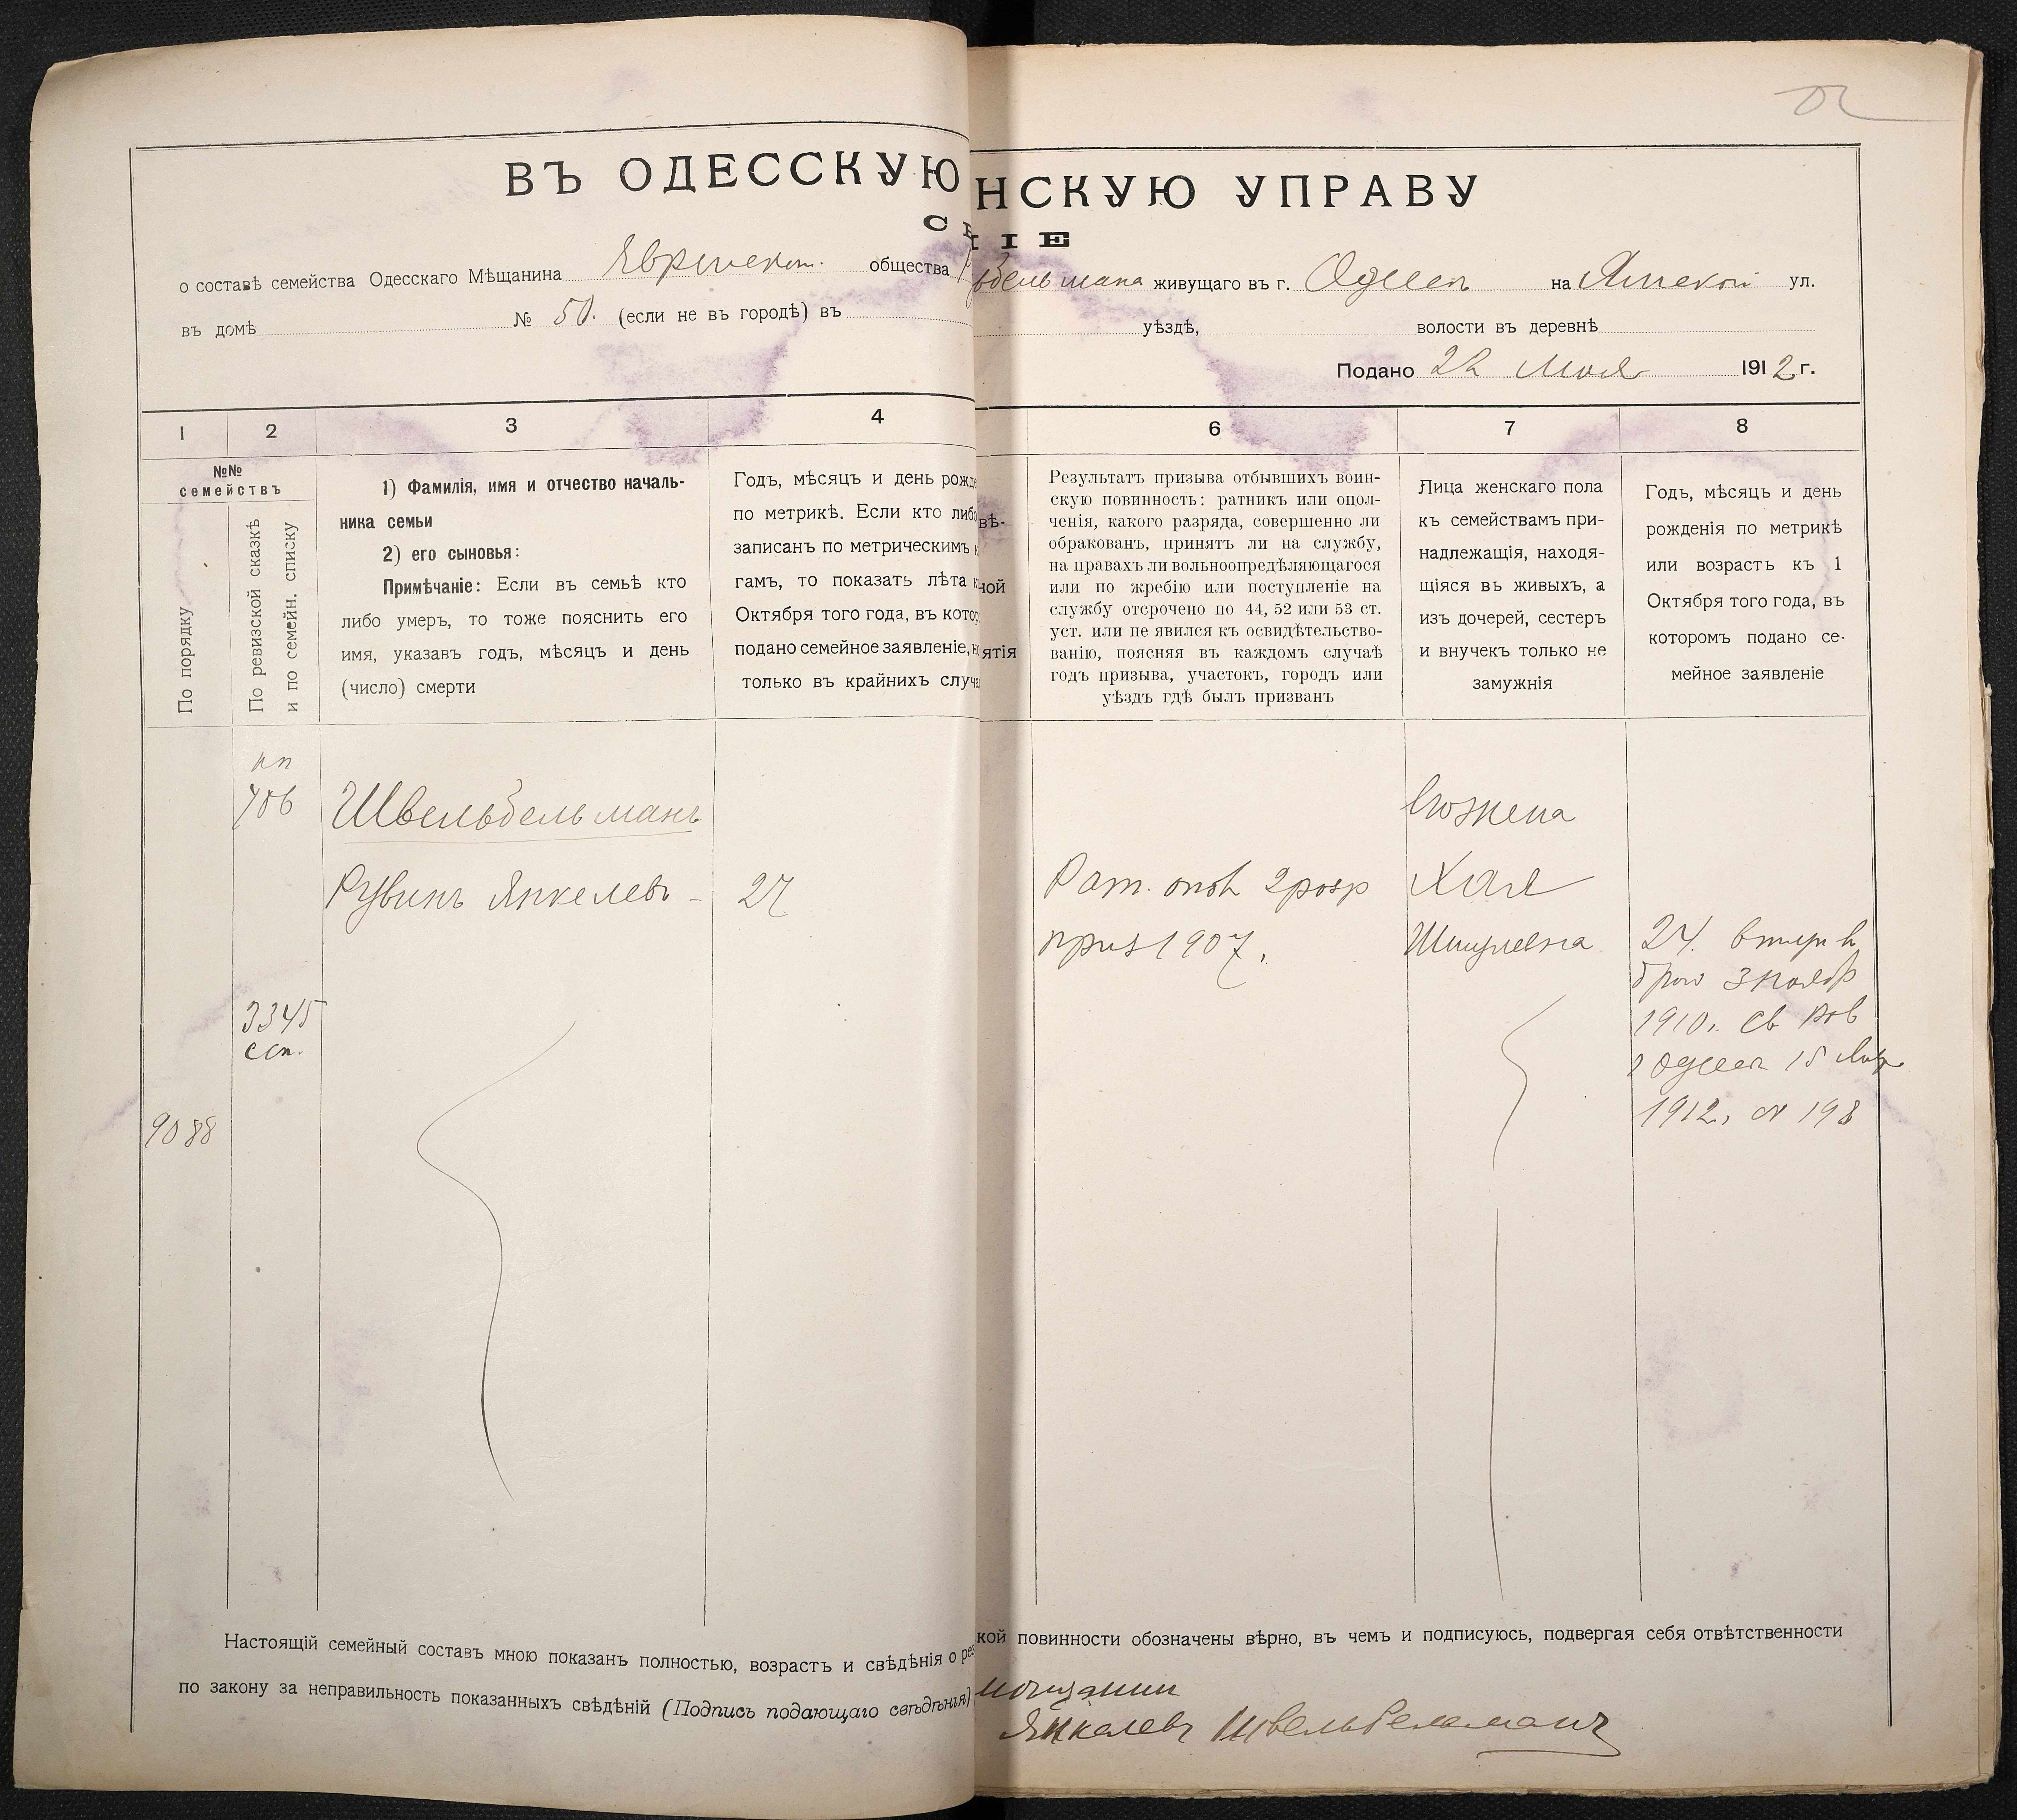 ВЪ ОДЕССКУЮ НСКУЮ УПРАВУ
ІЕ
о составѣ семейства Одесскаго Мѣщанина Еврейск. общества бельмана живущаго въ г. Одессѣ на Ямской ул.
въ домѣ № 50. (если не въ городѣ) въ уѣздѣ, волости въ деревнѣ
Подано 22 Мая 1912 г.
1 2 3 4 6 7 8
№№
семействъ
По порядку
По ревизской сказкѣ
и по семейн. списку
1) Фамилія, имя и отчество началь-
ника семьи
2) его сыновья:
Примѣчаніе: Если въ семьѣ кто
либо умеръ, то тоже пояснить его
имя, указавъ годъ, мѣсяцъ и день
(число) смерти
Годъ, мѣсяцъ и день рожде
по метрикѣ. Если кто либо
записанъ по метрическимъ
гамъ, то показать лѣта
Октября того года, въ котор
подано семейное заявленіе,
только въ крайнихъ случа
вѣ-
ной
ятія
Результатъ призыва отбывшихъ воин-
скую повинность: ратникъ или опол-
ченія, какого разряда, совершенно ли
обракованъ, принятъ ли на службу,
на правахъ ли вольноопредѣляющагося
или по жребію или поступленіе на
службу отсрочено по 44, 52 или 53 ст.
уст. или не явился къ освидѣтельство-
ванію, поясняя въ каждомъ случаѣ
годъ призыва, участокъ, городъ или
уѣздъ гдѣ былъ призванъ
Лица женскаго пола
къ семействамъ при-
надлежащія, находя-
щіяся въ живыхъ, а
изъ дочерей, сестеръ
и внучекъ только не
замужнія
Годъ, мѣсяцъ и день
рожденія по метрикѣ
или возрастъ къ 1
Октября того года, въ
котором подано се-
мейное заявленіе
406
Швельбельманъ
Рувинъ Янкелевъ - 27
Рат. опол 2 разр
приз 1907.
Его жена
Хая
Шмулевна
24. вступ въ
бракъ 3 Ноябр
1910 г. св Рав
г Одессы 15
1912, № 198
3345
сп.
9088
Настоящій семейный составъ мною показанъ полностью, возрастъ и свѣдѣнія о рез кой повинности обозначены вѣрно, въ чемъ и подписуюсь, подвергая себя отвѣтственности
по закону за неправильность показанныхъ свѣдѣній (Подпись подающаго свѣдѣнія)
Янкелевъ Швельбельманъ